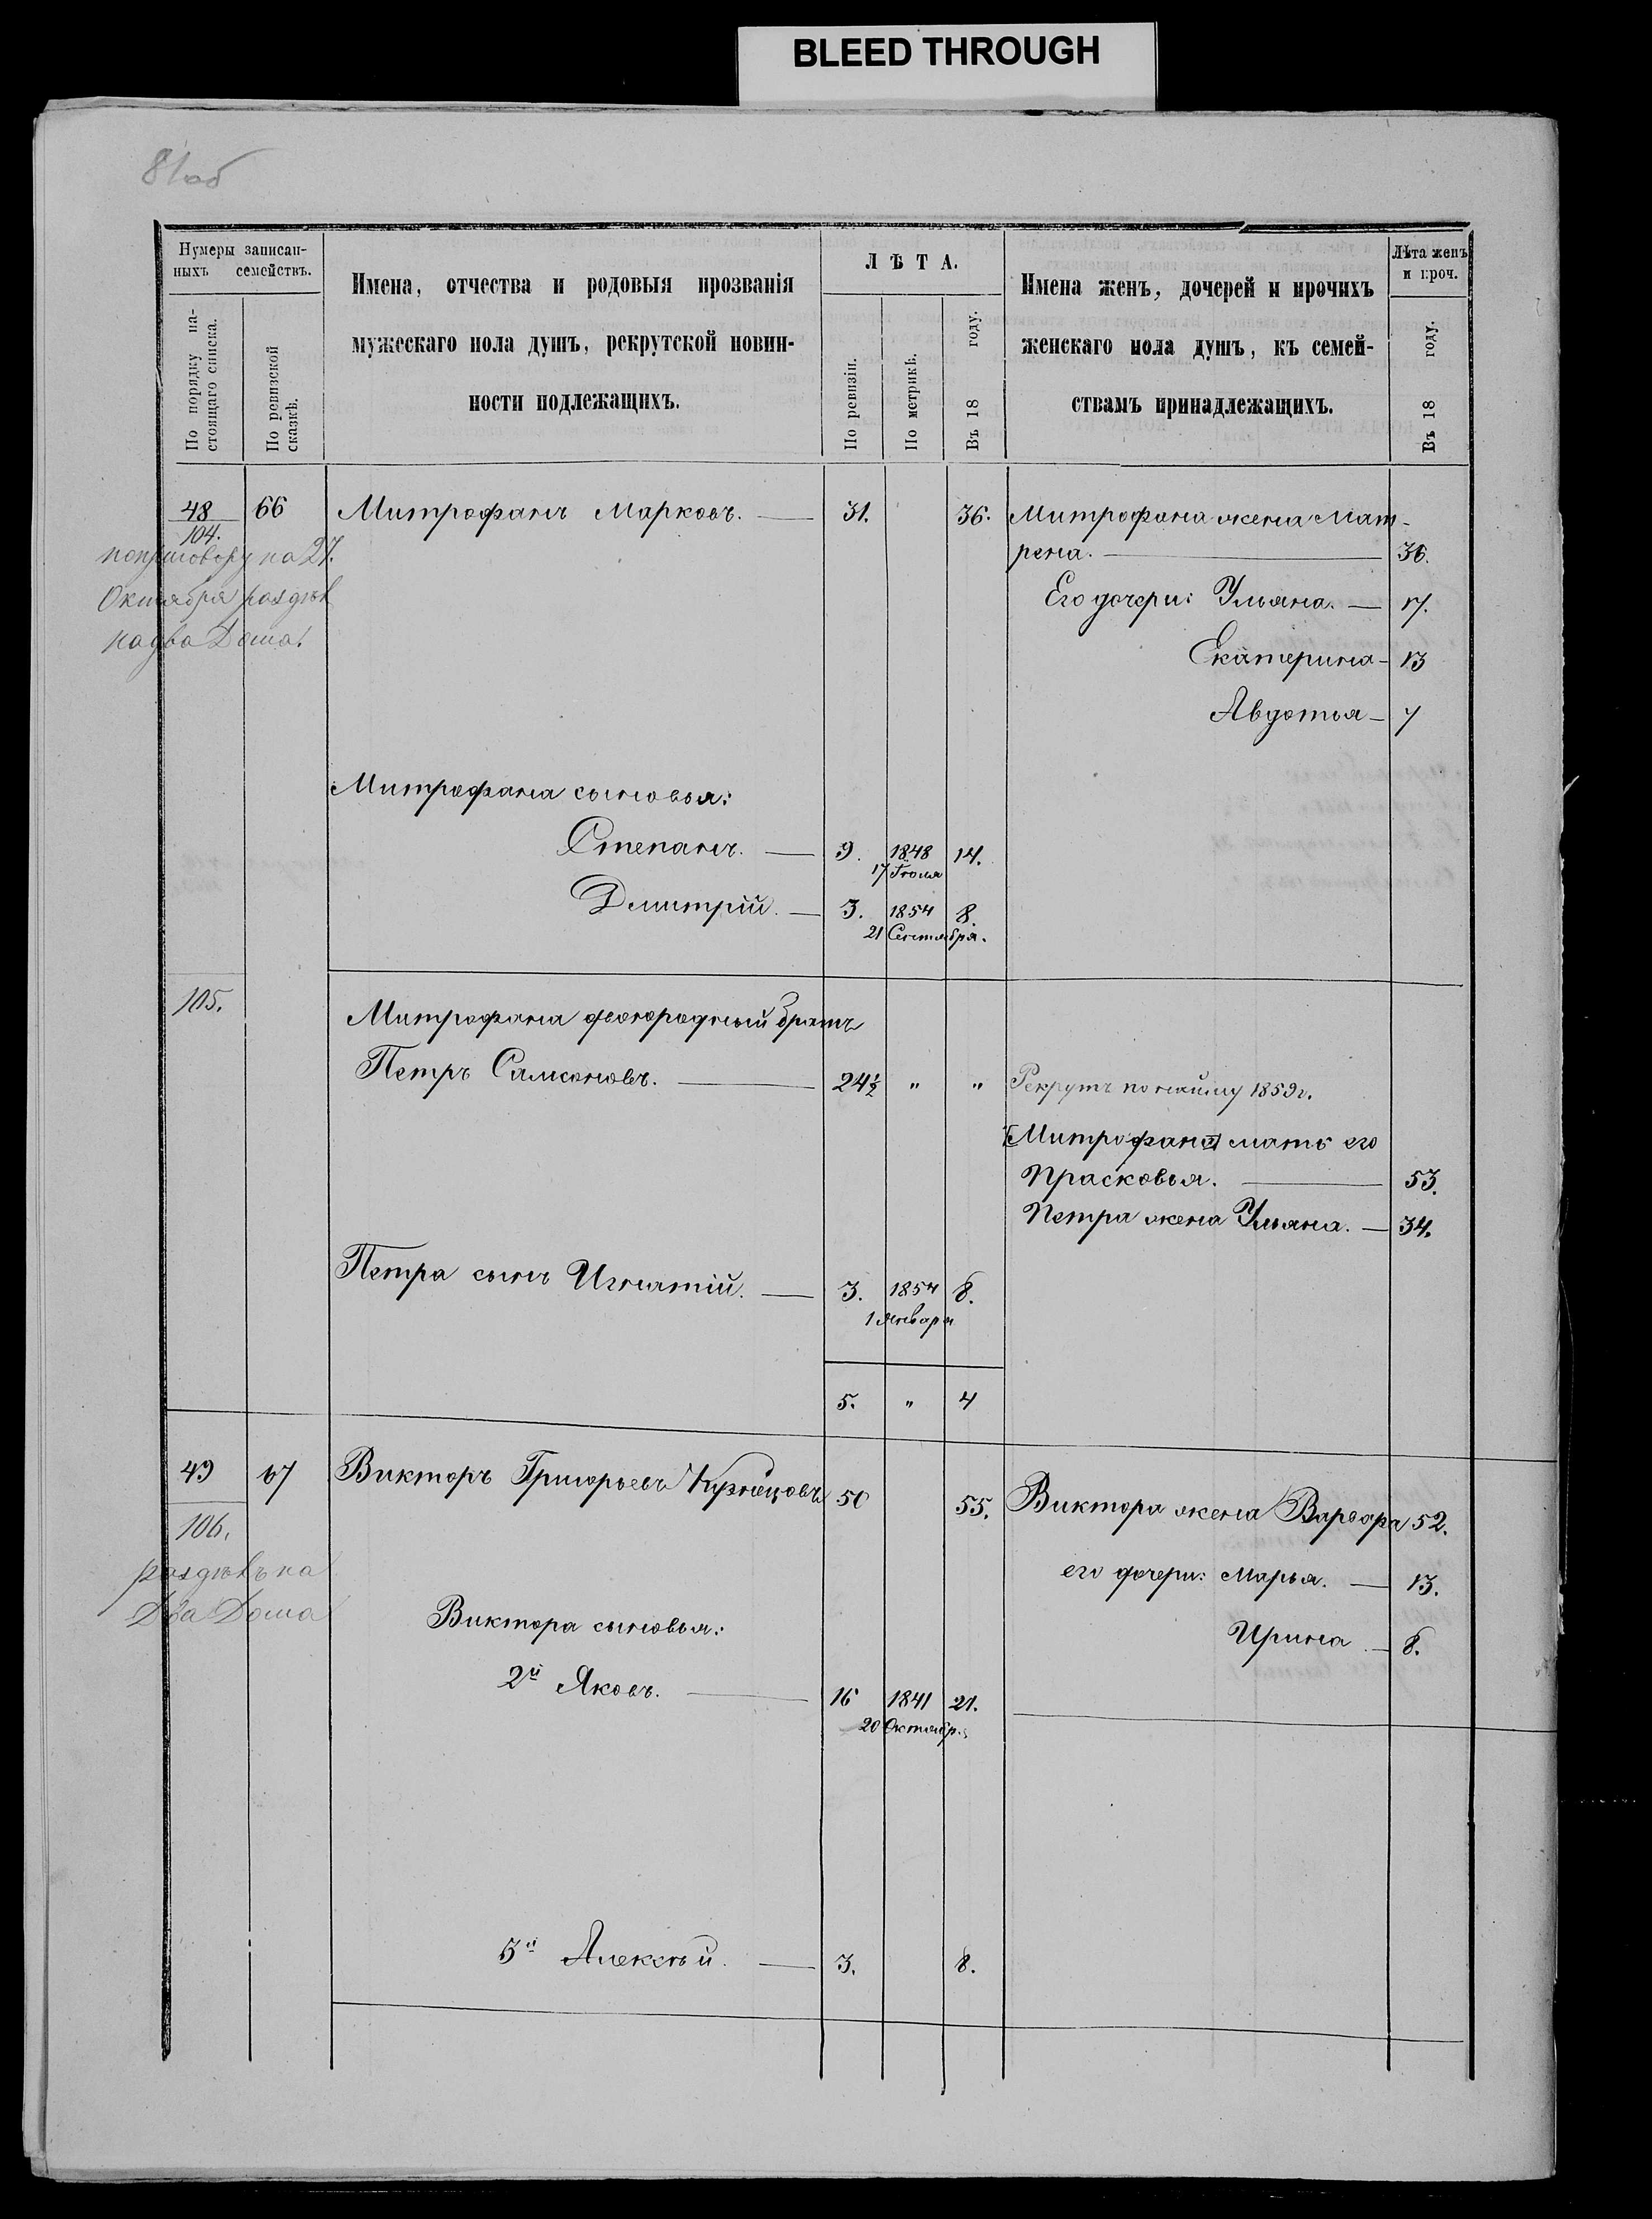 BLEED THROUGH
81об
Нумеры записан-
ныхъ семействъ.
По порядку на-
стоящаго списка.
По ревизской
сказкѣ.
Имена, отчества и родовыя прозванія
мужескаго пола душъ, рекрутской повин-
ности подлежащихъ.
ЛѢТА.
По ревизіи.
По метрикѣ.
Въ 18 году.
Имена женъ, дочерей и прочихъ
женскаго пола душъ, къ семей-
ствамъ принадлежащихъ.
Лѣта женъ
и проч.
Въ 18 году.
48 66 Митрофанъ Марковъ. 31. 36. Митрофана жена Мат-
104. рена. 36.
по приговору на 27.
Октября раздѣл
на два Дома.
Его дочери: Ульяна. 17.
Екатерина 13
Авдотья 7
Митрофана сыновья:
Степанъ. 9. 1848 14.
17 Іюля
Дмитрій. 3. 1854 8.
21 Сентября.
105.
Митрофана двоюродный братъ
Петръ Самсоновъ. 24½ " " Рекрутъ по найму 1859г.
[Митрофана] мать его
Прасковья. 53.
Петра жена Ульяна. 34.
Петра сынъ Игнатій. 3. 1854 8.
1 Января
5. " 4
49 67 Викторъ Григорьевъ Кузнецовъ 50 55. Виктора жена Варвара 52.
106.
раздѣлъ на
Два Дома
его дочери: Марья. 13.
Ирина 8.
Виктора сыновья:
2й Яковъ. 16 1841 21.
20 Октябр.
3й Алексѣй. 3. 8.